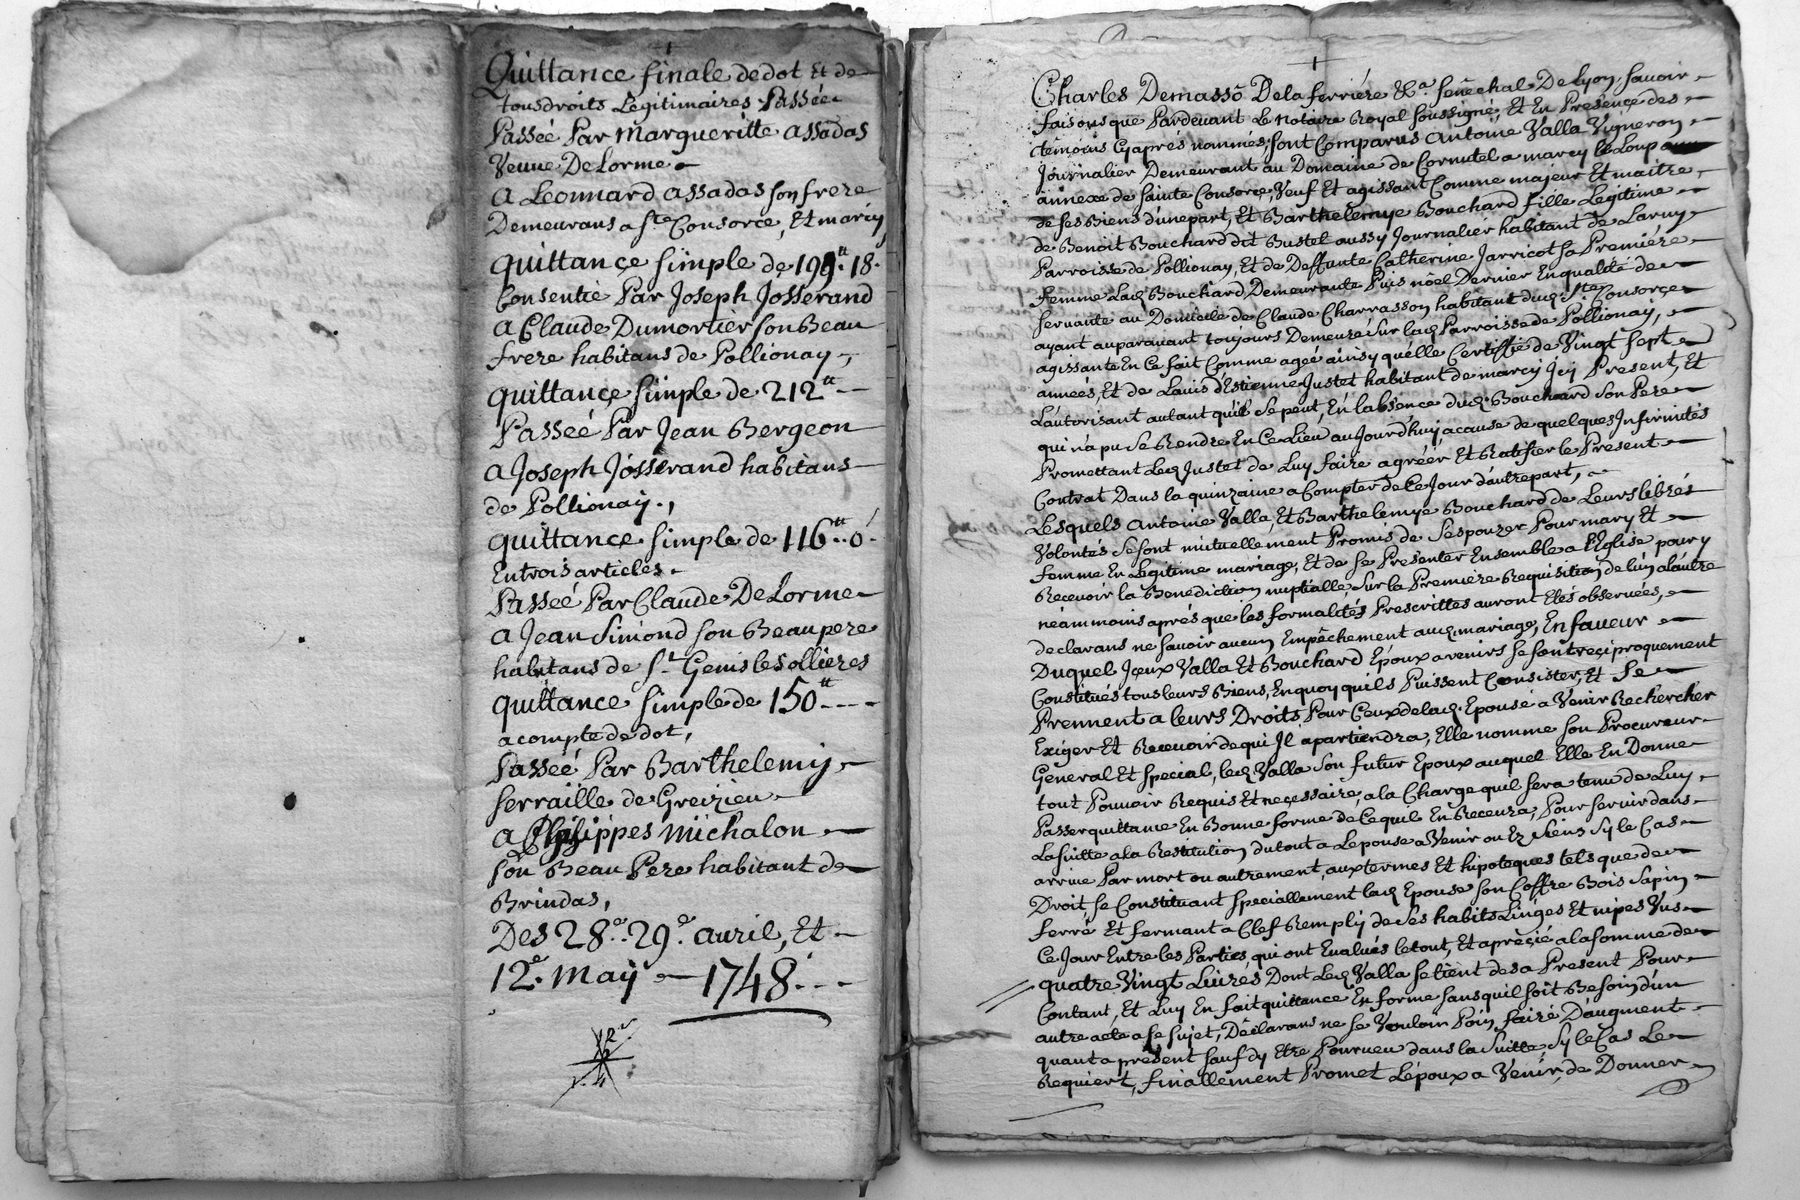 Quittance finale de dot Et de
tous droits Legitimaires Passée
Passeé Par Margueritte Assadas
Veuve De Lorme
A Leonnard Assadas son frere
Demeurans a Ste Consorce, Et marcy
quittance simple de 199tt 18.
Consentie Par Joseph Josserand
A Claude Dumortier son Beau
frere habitans de Pollionay,
quittance simple de 212tt
Passeé Par Jean Bergeon
A Joseph Josserand habitans
de Pollionay.,
quittance simple de 116tt..0.
En trois articles.
Passeé Par Claude De Lorme
A Jean Simond son Beaupere
habitans de St Genis les ollieres
quittance simple de 150tt----
acompte de dot,
Passeé Par Barthelemy
Serraille de Greizieu
A Philippes Michalon
son Beau Pere habitant de
Brindas,
Des 28e..29e avril, Et
12e. May 1748...
Charles Demasso De la ferriére &a. senêchal De Lyon, savoir
faisons que Pardevant Le Notaire Royal soussigné, Et En Presence des
têmoins Cy aprés nommés, sont Comparus Antoine Valla Vigneron
Journalier Demeurant au Domaine de Cornutel a marcy le Loup
annexe de sainte Consorçe, Veuf Et agissant Comme majeur Et maitre
de ses Biens d'unepart, Et Barthelemye Bouchard fille Legitime
de Benoit Bouchard dit Bustel aussy Journalier habitant de Larny
Parroisse de Pollionay, Et de Deffunte Catherine Jarricot sa Premiére
femme Lad. Bouchard Demeurante Puis nöel Dernier En qualité de
servante au Domicile de Claude Charrasson habitant dud. Ste. Consorçe
ayant auparavant toujours Demeuré sur lad. Parroisse de Pollionay,
agissante En Ce fait Comme ageé ainsy qu'elle Certiffie de Vingt sept
anneés, Et de L'avis d'Estienne Justet habitant de marcy Jcy Present, Et
L'autorisant autant qu'il se peut, En l'absence dud. Bouchard son Pere
qui n'a pu se Rendre En Ce Lieu aujourd'huy, acause de quelques Infirmités
Promettant Led. Justet de Luy faire agréer Et Ratifier le Present
Contrat Dans la quinzaine a Compter de Ce Jour d'autrepart,
Lesquels Antoine Valla, Et Barthelemye Bouchard de Leurs librés
Volontés se sont mutuellement Promis de s'espouzer Pour mary Et
femme En Legitime mariage, Et de se Presenter Ensemble a l'Eglise pour y
Recevoir la Benediction nuptialle sur la Premiere Requisition de l'un a l'autre
néammoins aprés que les formalités Prescrittes auront Etés observeés,
declarans ne savoir aucun Empêchement aud. mariage, En faveur
Duquel Jçeux Valla Et Bouchard Epoux avenirs se sont reçiproquement
Constitués tous leurs Biens, En quoy qu'ils Puissent Consister, Et se
Prennent a leurs Droits, Pour Ceux de lad. Epouse a Venir Rechercher
Exiger Et Recevoir de qui Jl apartiendra, Elle nomme son Procureur
General Et special, led. Valla son futur Epoux auquel Elle En Donne
tout Pouvoir Requis Et neçessaire, a la Charge quil sera tenu de Luy
Passer quittance En Bonne forme de Ce quil En Recevra, Pour servir dans
La suitte a la Restitution du tout a Lepouse a Venir ou Ez siens sy le Cas
arrive Par mort ou autrement, aux termes Et hipoteques tels que de
Droit, se Constituant speciallement lad. Epouse son Coffre Bois sapin
ferré Et fermant a Clef Remply de ses habits Linges Et nipes Vus
Ce Jour Entre les Parties, qui ont Evalués le tout, Et apreçié a la somme de
quatre Vingt Livrés Dont Led. Valla se tient des a Present Pour
Contant, Et Luy En fait quittance En forme sans quil soit Besoin d'un
autre acte a Ce sujet, Déclarans ne se Vouloir Poin faire D'augment
quant a present sauf dy Etre Pourveu dans la suitte, sy le Cas Le
Requiert, finallement Promet L'époux a Venir, de Donner